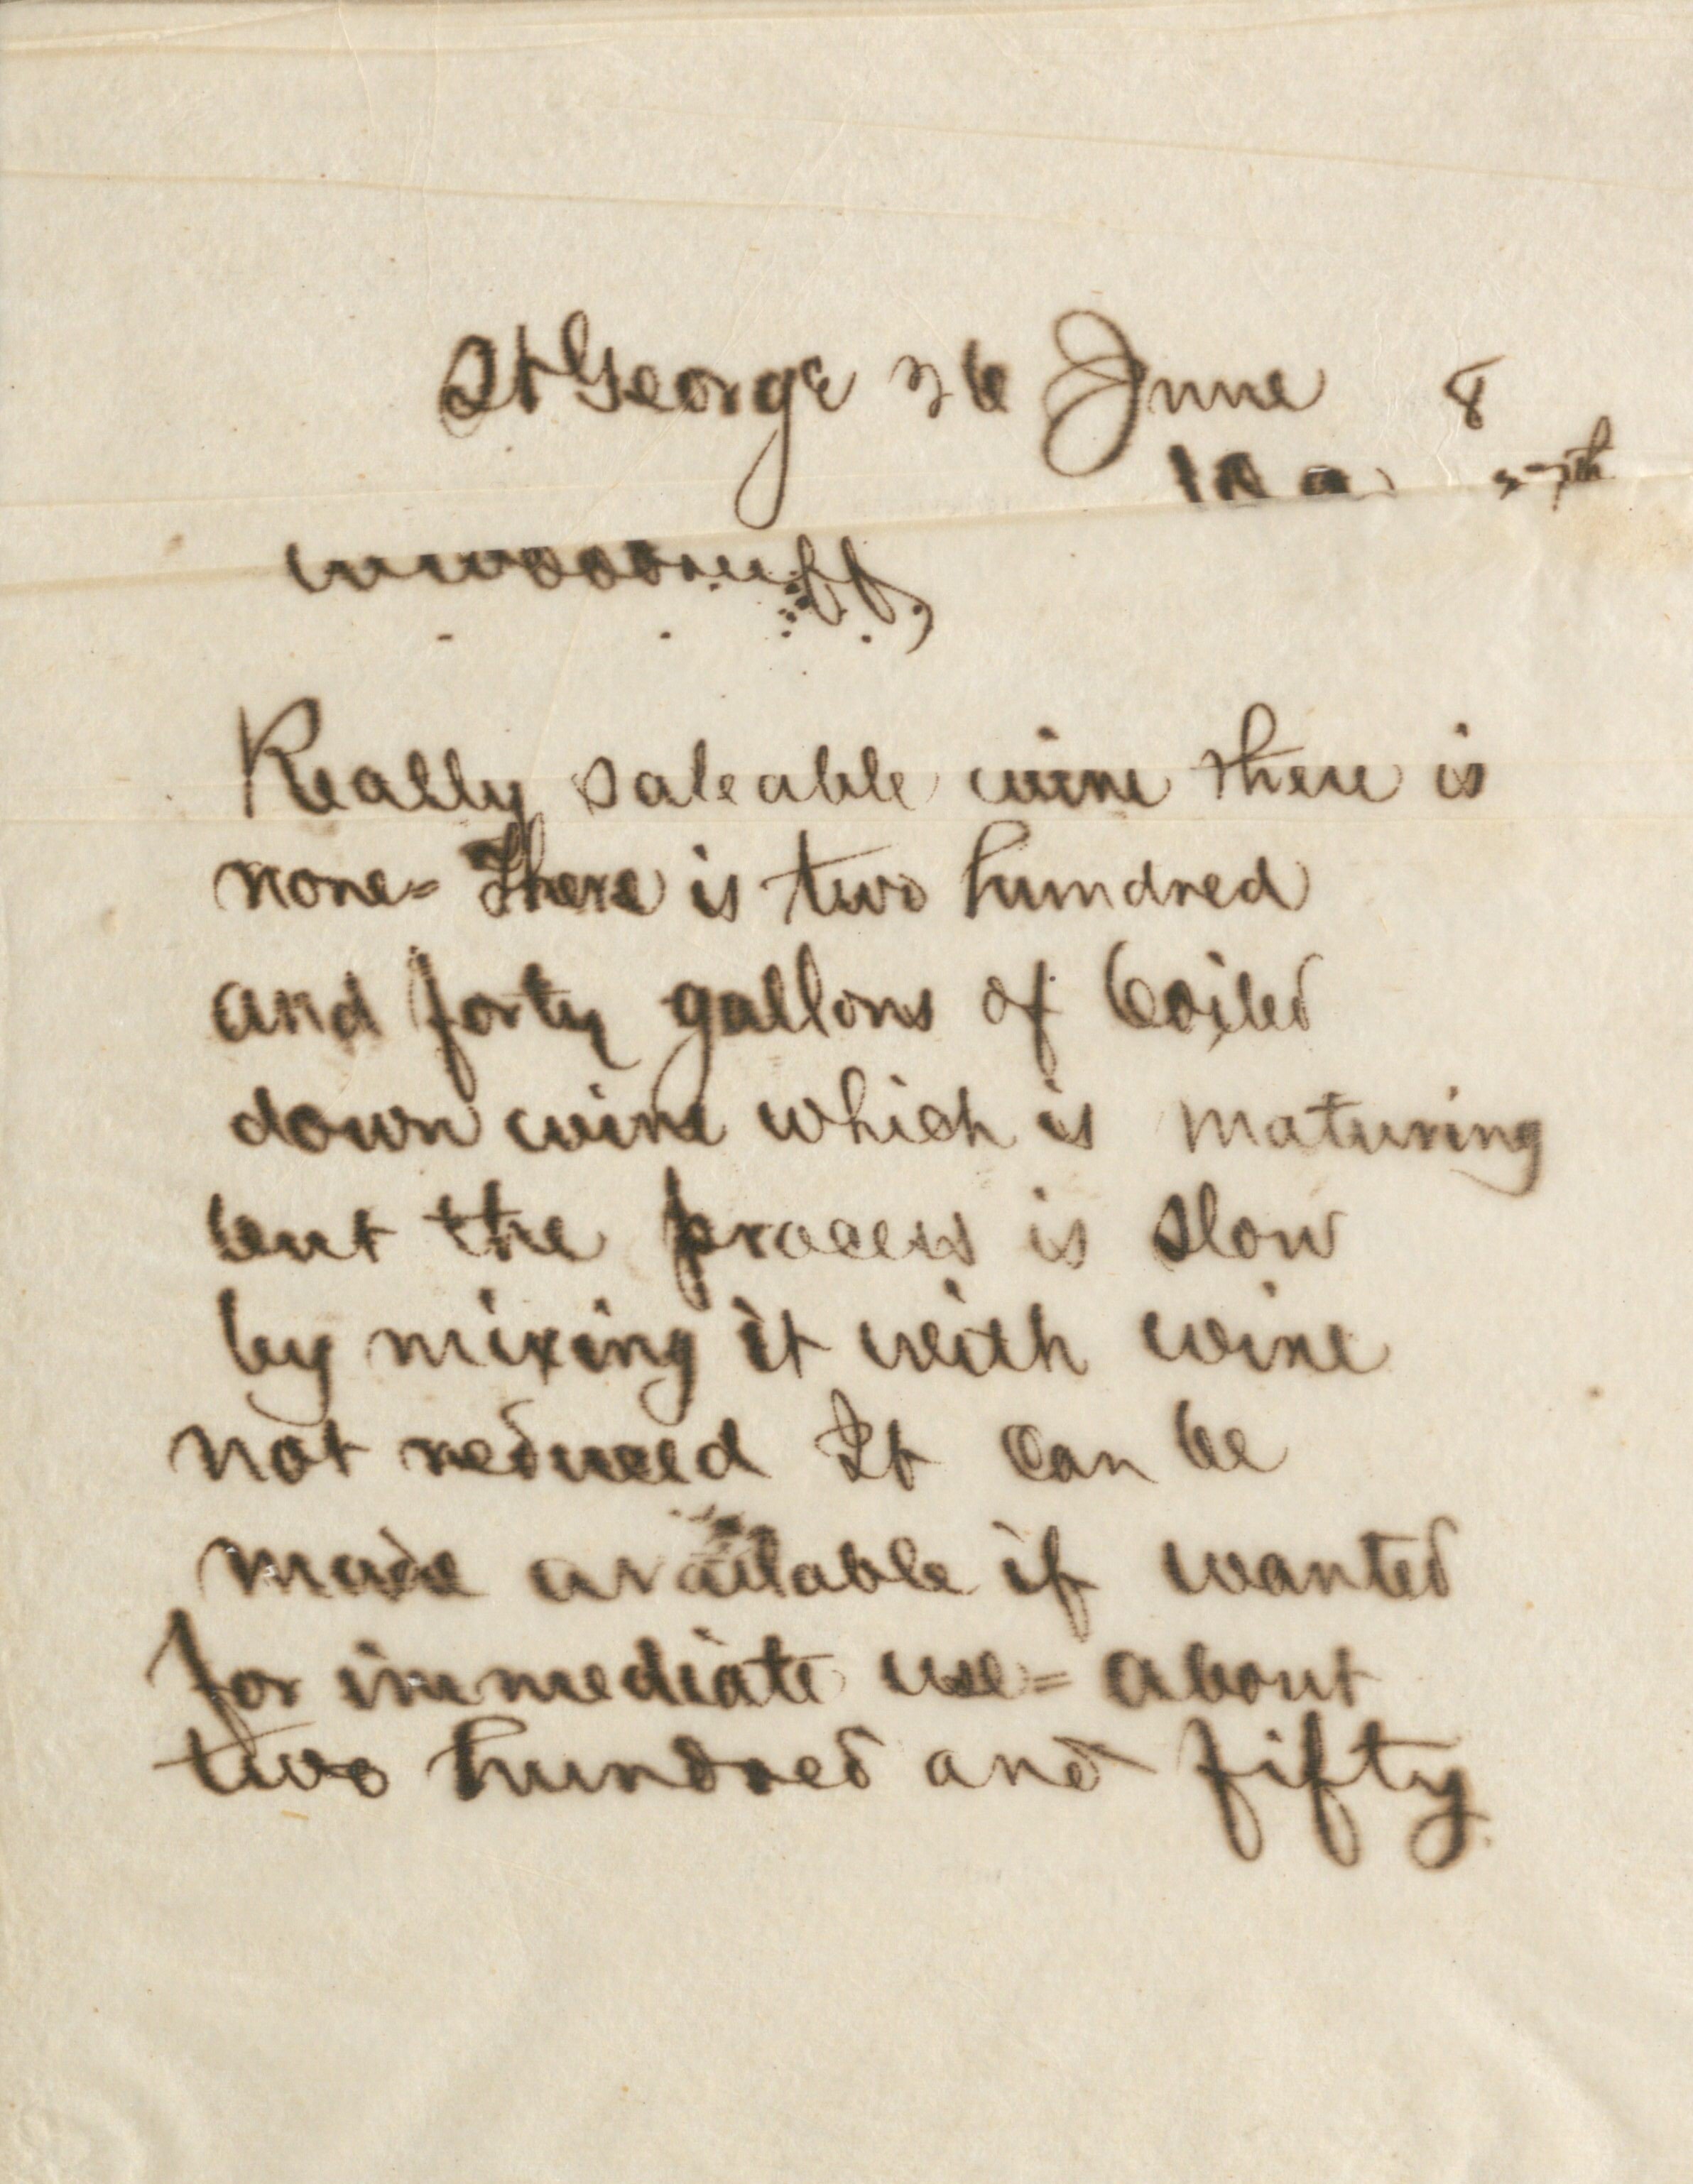 St George 26 June 8
10 a 27th
W Woodruff,
Really saleable wine there is
none= There is two hundred
and forty gallons of boiled
down wine which is maturing
but the process is slow
by mixing it with wine
not reduced It can be
made available if wanted
for immediate use= about
two hundred and fifty